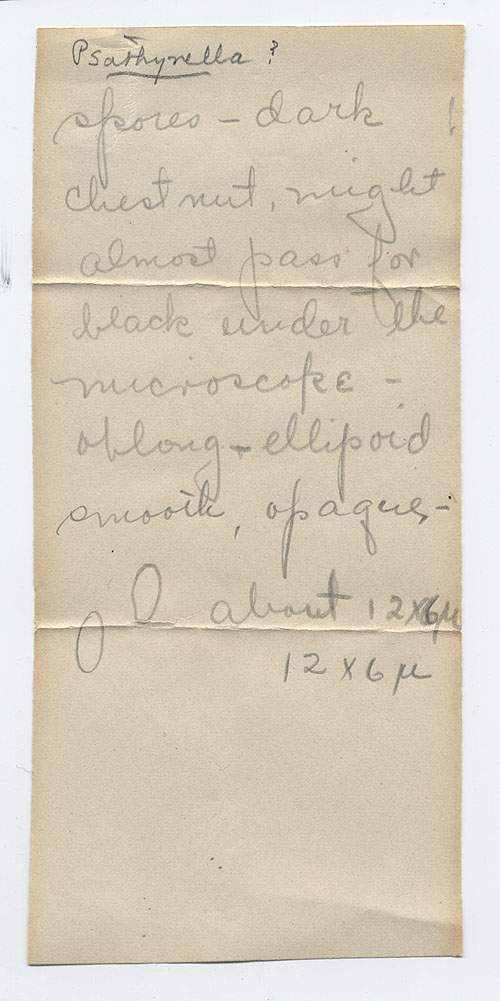 Psathyrella ?
spores – dark
chestnut, might
almost pass for
black under the
microscope –
oblong – ellipoid
smooth, opaque, –
about 12x6µ
12 x 6 µ